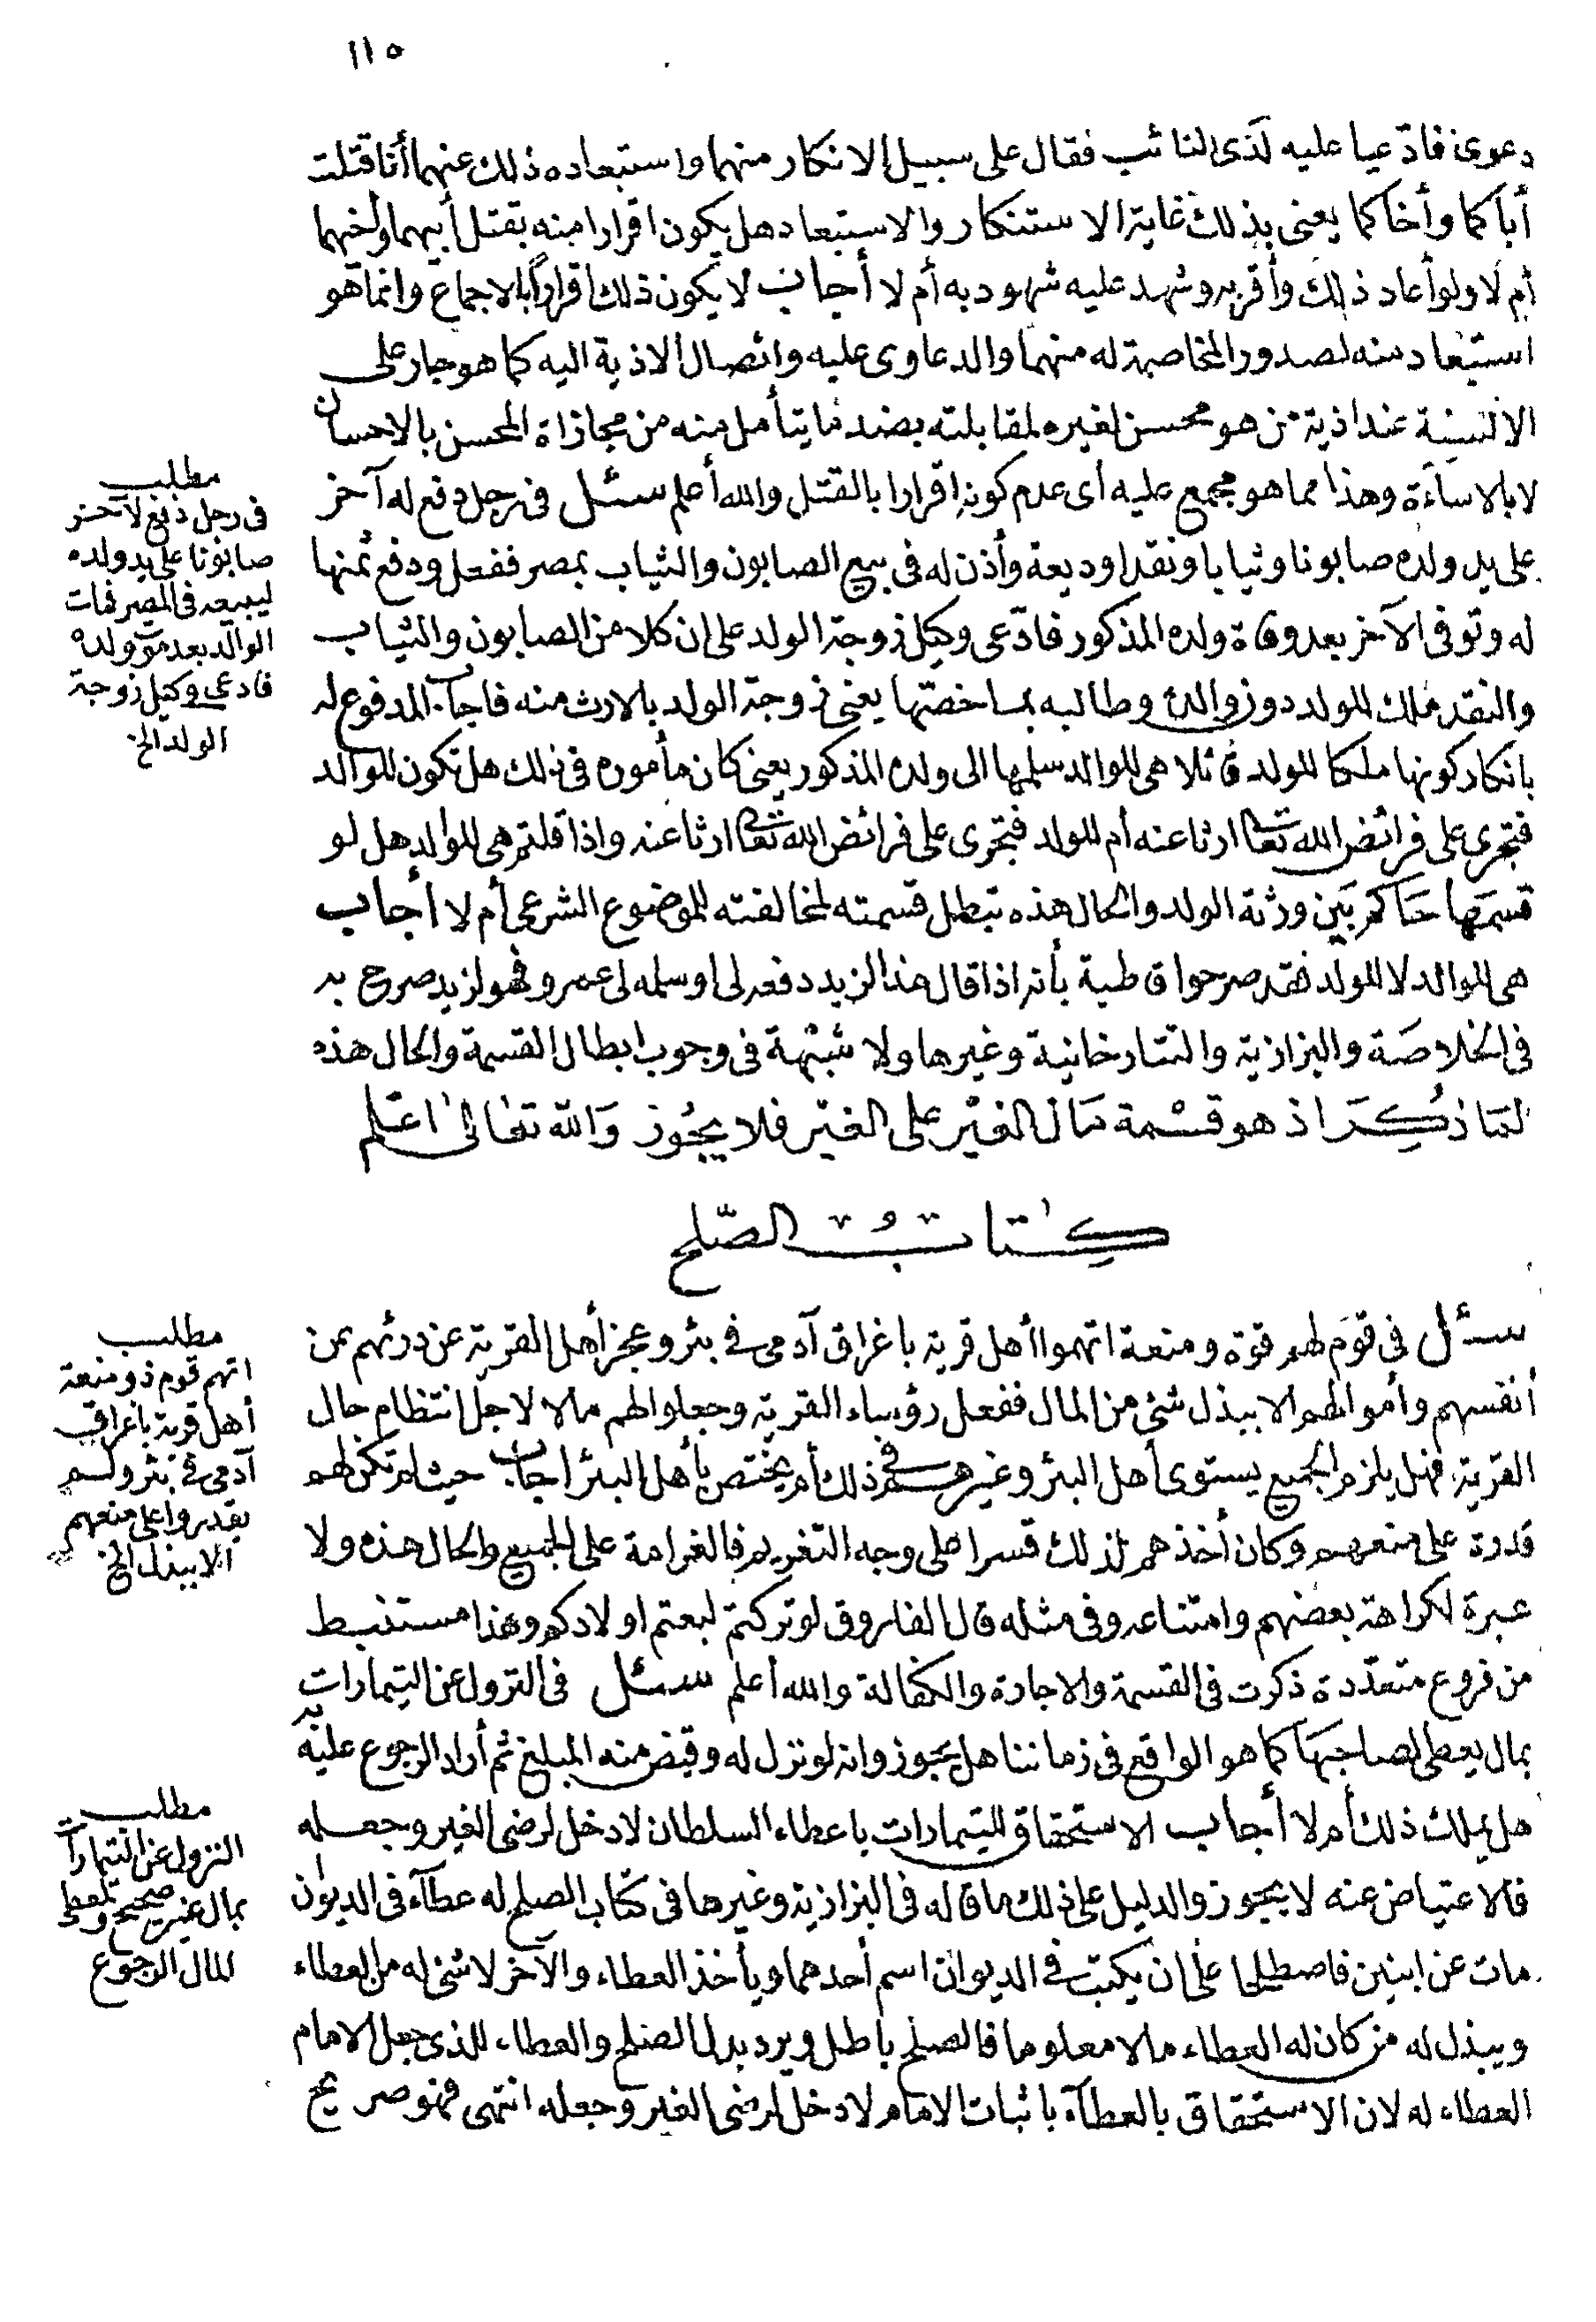 ١١٥
دعوى فادّعيا عليه لدى النائب فقال على سبيل الانكار منهما واستبعاده ذلك عنهما أنا قتلت
أباكما وأخاكما يعنى بذلك غاية الاستنكار والاستبعاد هل يكون اقرارا منه بقتل أبيهما وأخيهما
أم لا ولو أعاد ذلك وأقر به وشهد عليه شهود به أم لا أجاب لا يكون ذلك اقراراً بالاجماع وانما هو
استبعاد منه لصدور المخاصمة له منهما والدعاوى عليه واتصال الاذية اليه كما هو جار على
الالسنة عند اذية من هو محسن لغيره لمقابلته بضد ما يتأمل منه من مجازاة المحسن بالاحسان
لا بالاساءة وهذا مما هو مجمع عليه أى عدم كونه اقرارا بالقتل والله أعلم سئل فى رجل دفع له آخر
على يد ولده صابونا وثيابا ونقدا وديعة وأذن له فى بيع الصابون والثياب بمصر ففعل ودفع ثمنها
له وتوفى الآخر بعد وفاة ولده المذكور فادّعى وكيل زوجة الولد على ان كلا من الصابون والثياب
والنقد ملك للولد دون والده وطالبه بما خصّها يعنى زوجة الولد بالارث منه فاجاب المدفوع له
بانكار كونها ملكا للولد قائلا هى للوالد سلمها الى ولده المذكور يعنى كان مأموره فى ذلك هل تكون للوالد
فتجرى على فرائض الله تعالى ارثا عنه أم للولد فتجرى على فرائض الله تعالى ارثا عنه واذا قلتم هى للوالد هل لو
قسمها حاكم بين ورثة الولد والحال هذه تبطل قسمته لمخالفته للموضوع الشرعى أم لا أجاب
هى للوالد لا للولد فقد صرحوا قاطبة بأنه اذا قال هذا لزيد دفعه لى او سلمه لى عمرو فهو لزيد صرح به
فى الخلاصة والبزازية والتتارخانية وغيرها ولا شبهة فى وجوب ابطال القسمة والحال هذه
لما ذُكِرَ اذ هو قسْمة مال الغيْر على الغيْر فلا يجُوز وَالله تعالى اعلم
كتابُ الصّلح
سئل فى قوم لهم قوة ومنعة اتهموا أهل قرية باغراق آدمى فى بئر وعجز أهل القرية عن درئهم عن
أنفسهم وأموالهم الا ببذل شئ من المال ففعل رؤساء القرية وجعلوا لهم مالا لاجل انتظام حال
القرية فهل يلزم الجميع يستوى أهل البئر وغيرهم فى ذلك أم يختص بأهل البئر اجاب حيث لم تكن لهم
قدرة على منعهم وكان أخذهم لذلك قسرا على وجه التغريم فالغرامة على الجميع والحال هذه ولا
عبرة لكراهة بعضهم وامتناعه وفى مثله قال الفاروق لو تركتم لبعتم اولادكم وهذا مستنبط
من فروع متعدّدة ذكرت فى القسمة والاجارة والكفالة والله أعلم سئل فى النزول عن التيمارات
بمال يعطى لصاحبها كما هو الواقع فى زماننا هل يجوز وانه لو نزل له وقبض منه المبلغ ثم أراد الرجوع عليه به
هل يملك ذلك أم لا أجاب الاستحقاق للتيمارات باعطاء السلطان لا دخل لرضى الغير وجعله
فالاعتياض عنه لا يجوز والدليل على ذلك ما قاله فى البزازية وغيرها فى كتاب الصلح له عطآء فى الديوان
مات عن ابنين فاصطلحا على ان يكتب فى الديوان اسم أحدهما ويأخذ العطاء والآخر لا شئ له من العطاء
ويبذل له من كان له العطاء مالا معلوما فالصلح باطل ويرد بدل الصلح والعطاء للذى جعل الامام
العطاء له لان الاستحقاق بالعطآء باثبات الامام لا دخل لرضى الغير وجعله انتهى فهو صريح
مطلب
فى رجل دفع لآخر
صابونا على يد ولده
ليبيعه فى المصر فمات
الوالد بعد موت ولده
فادعى وكيل زوجة
الولد الخ
مطلب
اتهم قوم ذو منعة
أهل قرية باغراق
آدمى فى بئر ولم
يقدروا على منعهم
الا ببذل الخ
مطلب
النزول عن التيمارات
بمال غير صحيح وللمعطى
للمال الرجوع